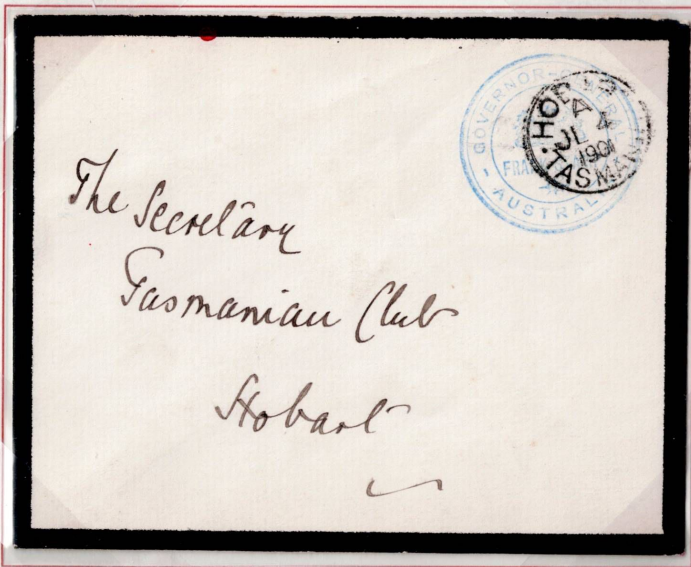 GOVERNOR-GENERAL
FRA
AUSTRALIA
HOBART
A
JL 4
1901
TASMANIA
The Secretary
Tasmanian Club
Hobart